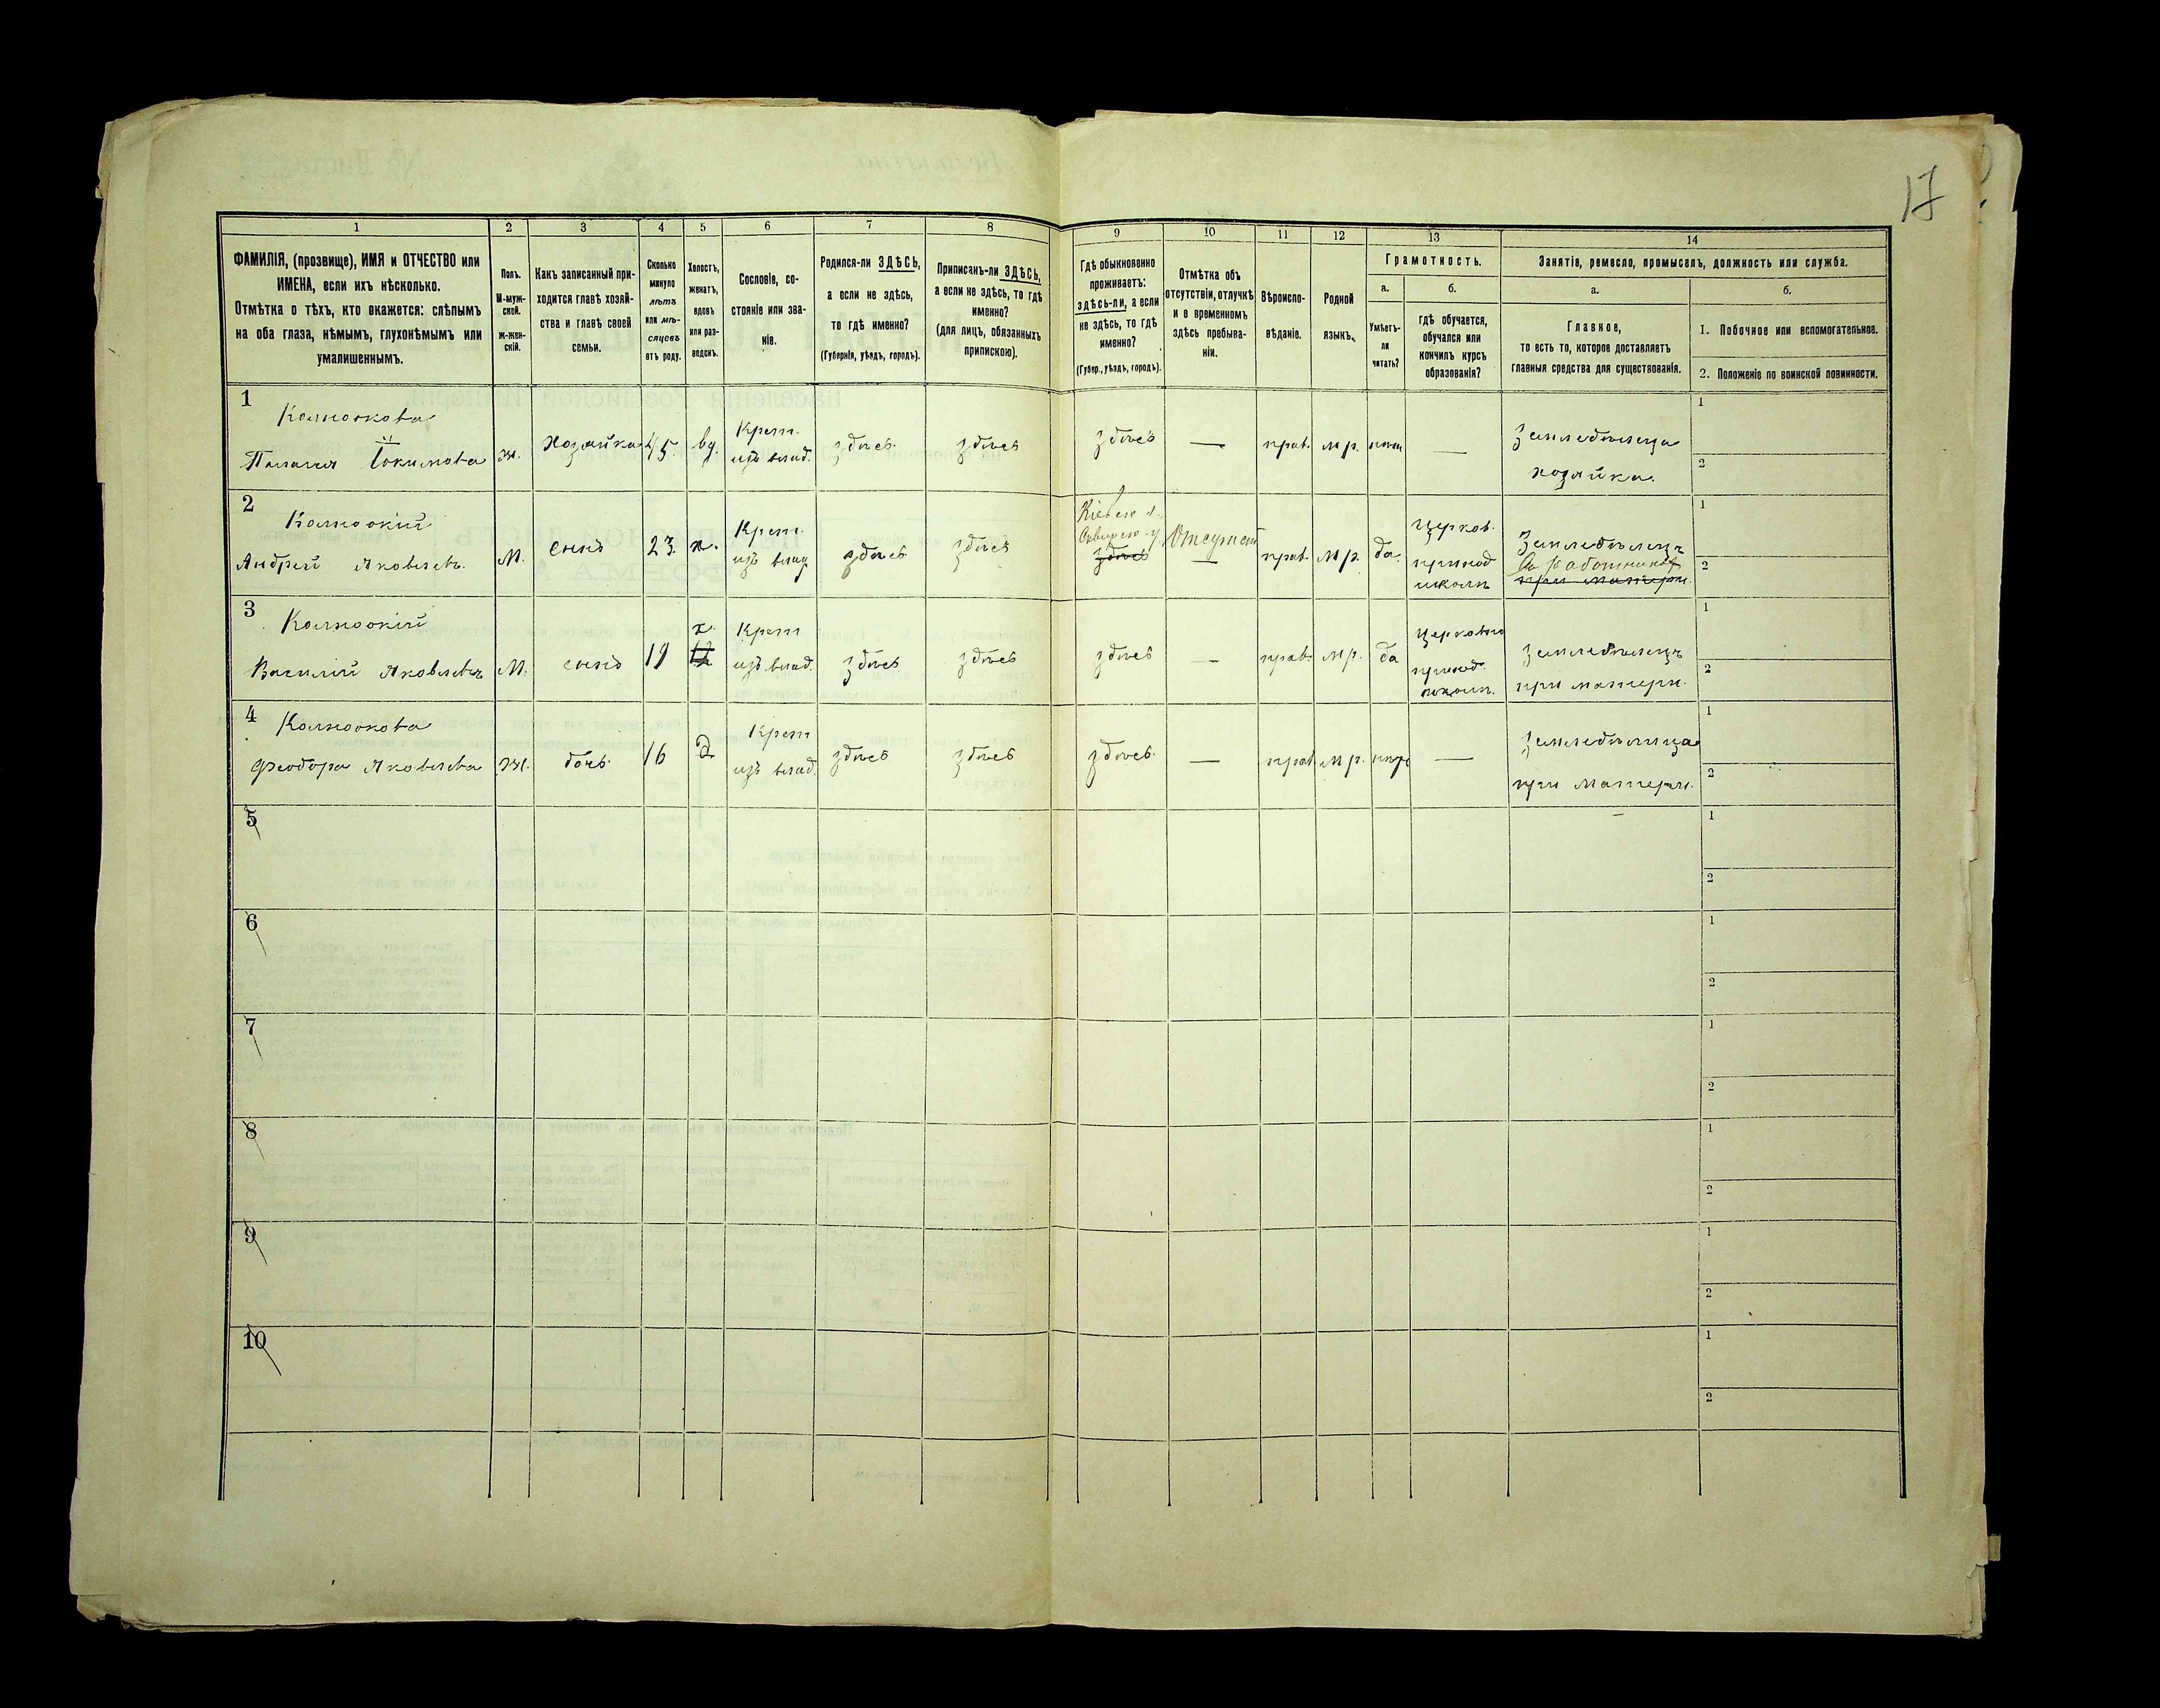 17
1 2 3 4 5 6 7 8 9 10 11 12 13 14
ФАМИЛІЯ, (прозвище), ИМЯ и ОТЧЕСТВО или
ИМЕНА, если ихъ нѣсколько.
Отмѣтка о тѣхъ, кто окажется: слѣпымъ
на оба глаза, нѣмымъ, глухонѣмымъ или
умалишеннымъ.
Полъ.
М-муж-
ской.
ж-жен-
скій.
Какъ записанный при-
ходится главѣ хозяй-
ства и главѣ своей
семьи.
Сколько
минуло
лѣтъ
или мѣ-
сяцевъ
отъ роду.
Холостъ,
женатъ,
вдовъ
или раз-
веденъ.
Сословіе, со-
стояніе или зва-
ніе.
Родился-ли ЗДѢСЬ,
а если не здѣсь,
то гдѣ именно?
(Губернія, уѣздъ, городъ).
Приписанъ-ли ЗДѢСЬ,
а если не здѣсь, то гдѣ
именно?
(для лицъ, обязанныхъ
припискою).
Гдѣ обыкновенно
проживаетъ:
здѣсь-ли, а если
не здѣсь, то гдѣ
именно?
(Губер., уѣздъ, городъ).
Отмѣтка объ
отсутствіи, отлучкѣ
и о временномъ
здѣсь пребыва-
ніи.
Вѣроиспо-
вѣданіе.
Родной
языкъ.
Грамотность.
а.
Умѣетъ-
ли
читать?
б.
гдѣ обучается,
обучался или
кончилъ курсъ
образованія?
Занятіе, ремесло, промыселъ, должность или служба.
а.
Главное,
то есть то, которое доставляетъ
главныя средства для существованія.
б.
1. Побочное или вспомогательное.
2. Положеніе по воинской повинности.
1
Пелагия Іокимова
ж.
Хозяйка
45
вд.
Крест.
изъ влад.
здѣсь
здѣсь
здѣсь
—
прав.
мр.
нѣт
—
Земледѣлица
хозяйка.
1
2
2
Андрей Яковлевъ.
М.
сынъ
23.
х.
Крест.
изъ влад
здѣсь
здѣсь
Кіевск г.
здѣсь
Отсутст
—
прав.
мр.
да
Церков.
приход
школѣ
Земледѣлецъ
при матери.
1
2
3
Василій Яковлевъ
М.
сынъ
19
х.
Крест
изъ влад.
здѣсь
здѣсь
здѣсь
—
прав.
мр.
да
Церковно
приход.
школѣ.
Земледѣлецъ
при матери.
1
2
4
Феодора Яковлева
ж.
дочь.
16
д
Крест
изъ влад.
здѣсь
здѣсь
здѣсь.
—
прав
мр.
нѣт
—
Земледѣлица
при матери.
1
2
5
1
2
6
1
2
7
1
2
8
1
2
9
1
2
10
1
2